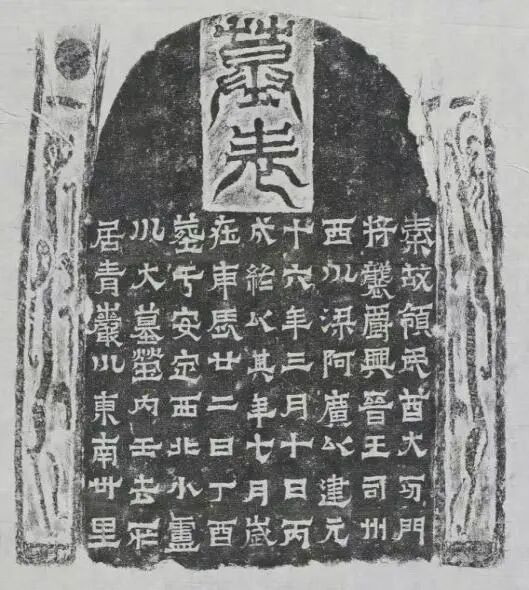 墓表
秦故領民酋大功門
將襲爵興晉王司州
西川梁阿廣以建元
十六年三月十日丙
戌終以其年七月歲
在庚辰廿二日丁酉
葬于安定西北小盧
川大墓塋內壬去所
居青巖川東南卅里